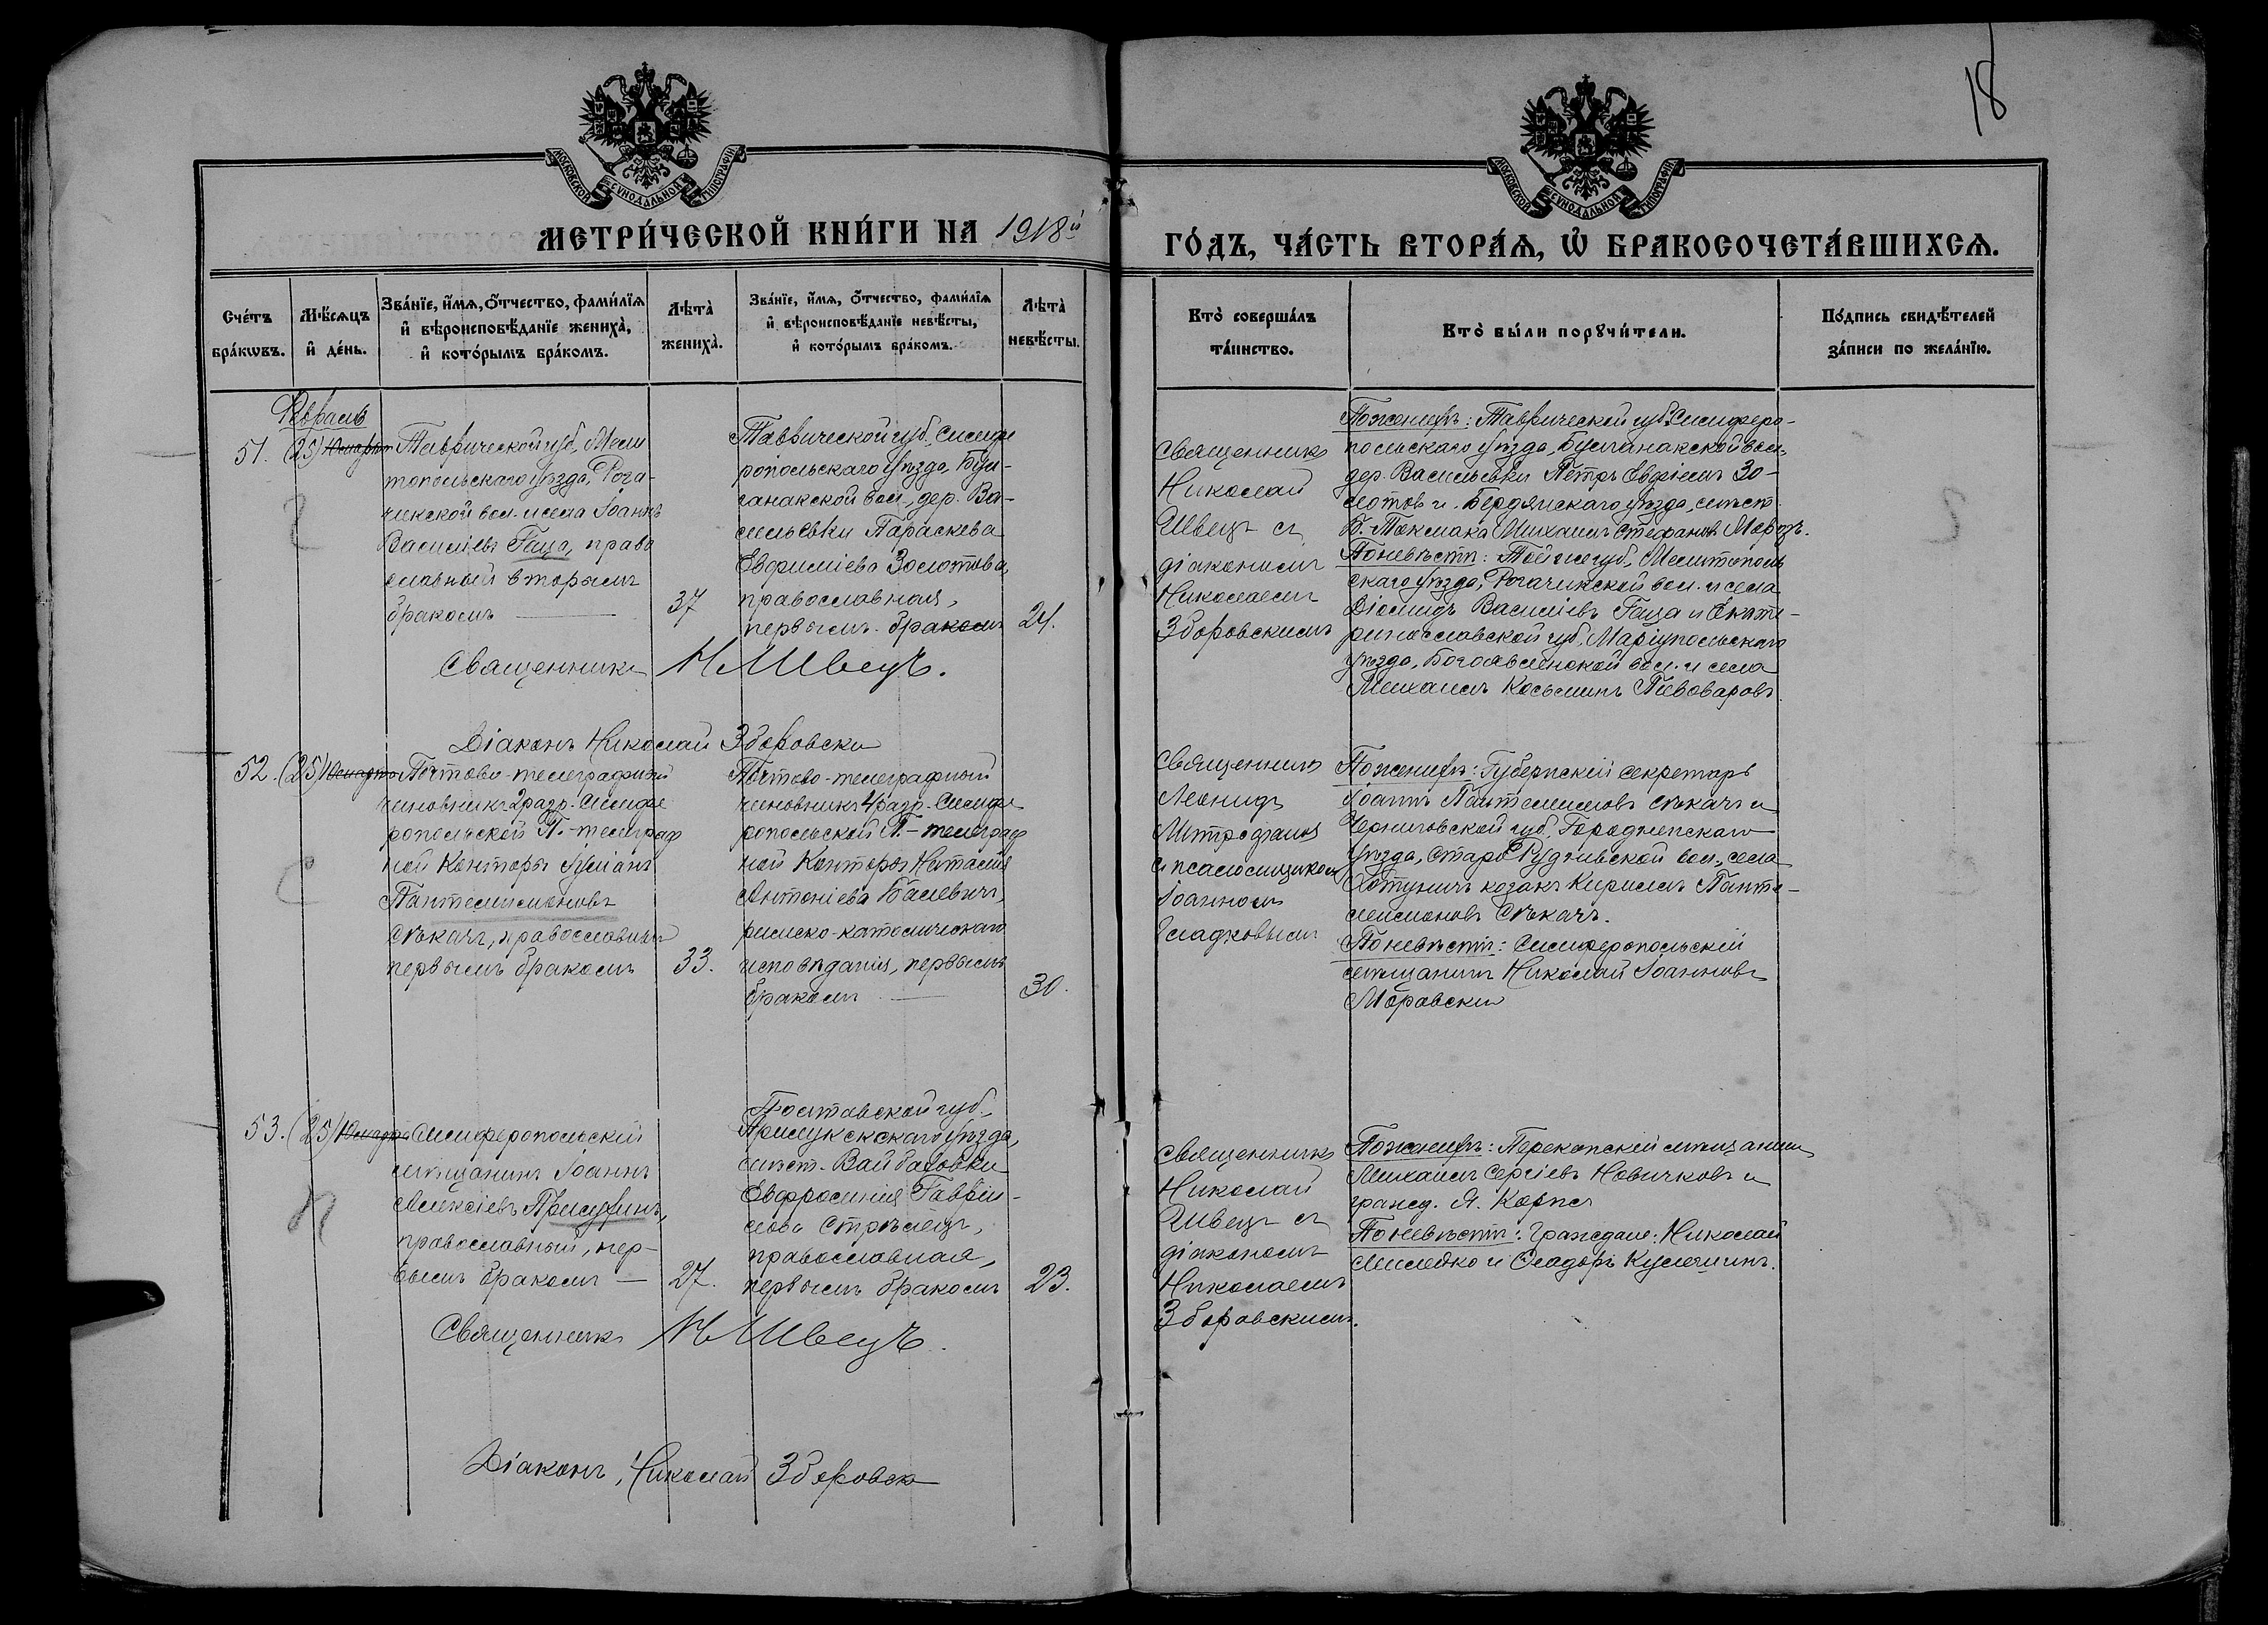 18
МОСКОВСКОЙ СѴНОДАЛЬНОЙ ТИПОГРАФІИ
МОСКОВСКОЙ СѴНОДАЛЬНОЙ ТИПОГРАФІИ
МЕТРИ́ЧЕСКОЙ КНИ́ГИ НА 1918й
ГО́ДЪ, ЧА́СТЬ ВТОРА́Ѧ, Ѽ БРАКОСОЧЕТА́ВШИХСѦ.
Сче́тъ бра́кѡвъ.
Мѣ́сѧцъ и҆ де́нь.
Зва́нїе, и҆́мѧ, ѻ҆́тчество, фами́лїѧ
и҆ вѣроисповѣ́данїе жениха̀,
и҆ кото́рымъ бра́комъ.
Лѣта̀ жениха̀.
Зва́нїе, и҆́мѧ, ѻ҆́тчество, фами́лїѧ
и҆ вѣроисповѣ́данїе невѣ́сты,
и҆ кото́рымъ бра́комъ.
Лѣта̀ невѣ́сты.
Кто̀ соверша́лъ
та́инство.
Кто̀ бы́ли порꙋчи́тели.
По́дпись свидѣ́телей
за́писи по жела́нїю.
Февраль
51. (25)
Таврической губ., Мели
топольскаго уѣзда, Рога-
чикской вол. и села Іоаннъ
Василіевъ Гаца, право
славный вторымъ
бракомъ
37
Таврической губ. Симфе
ропольскаго уѣзда, Бул-
ганакской вол., дер. Ва-
сильевки Параскева
Евфиміева Золотова,
православная,
первымъ бракомъ
24.
Священникъ
Николай
Швецъ съ
діакономъ
Николаемъ
Зборовскимъ
По женихѣ: Таврической губ. Симферо-
польскаго уѣзда, Булганакской вол.
дер. Васильевки Петръ Евфіем. Зо-
лотов и Бердянскаго уѣзда, мѣст.
Б. Токмака Михаилъ Стефановъ Морозъ.
По невѣстѣ: Той же губ., Мелитополь
скаго уѣзда, Рогачикской вол. и села
Діомидъ Василіевъ Гаца и Екате-
ринославской губ. Маріупольскаго
уѣзда, Богоявленской вол. и села
Михаилъ Косьминъ Пивоваровъ.
Священникъ Н Швецъ.
Діаконъ Николай Зборовски
52. (25)
Почтово-телеграфный
чиновникъ 2 разр. Симфе
ропольской П.-телеграф
ной Конторы Іуліанъ
Пантелеимоновъ
Сѣкачъ, православный
первымъ бракомъ
33.
Почтово-телеграфный
чиновникъ 4 разр. Симфе
ропольской П.-телеграф
ной Конторы Наталія
Антоніева Балевичъ,
римско-католическаго
исповѣданія, первымъ
бракомъ
30.
Священникъ
Леонидъ
Митрофановъ
съ псаломщикомъ
Іоанномъ
Гладковымъ
По женихѣ: Губернскій секретарь
Іоаннъ Пантелеимоновъ Сѣкачъ и
Черниговской губ. Городненскаго
уѣзда, Старо Руднинской вол., села
Хотуничъ козакъ Кириллъ Панте-
леимоновъ Сѣкачъ.
По невѣстѣ: Симферопольскій
мѣщанинъ Николай Іоанновъ
Моравскій
53. (25)
Симферопольскій
мѣщанинъ Іоаннъ
Алексіевъ Прилуфинъ,
православный, пер-
вымъ бракомъ
27.
Полтавской губ.,
Прилукскаго уѣзда,
мѣст.
Евфросинія Гаврі-
лова Стрѣлецъ,
православная,
первымъ бракомъ
23.
Священникъ
Николай
Швецъ съ
діакономъ
Николаемъ
Зборовскимъ.
По женихѣ: Перекопскій мѣщанинъ
Михаилъ Сергіевъ Новичковъ и
гражд. Я. Корпел
По невѣстѣ: Граждане: Николай
и Сладоръ
Священникъ Н Швецъ.
Діаконъ Николай Зборовск